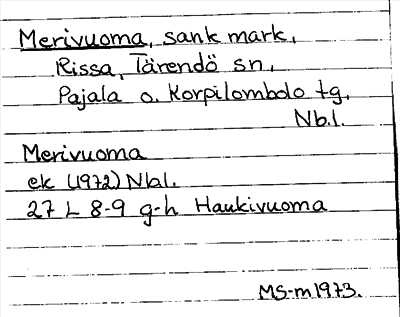 Merivuoma, sank mark,
Rissa, Tärendö sn,
Pajala o. Korpilombolo tg,
Nb.l.
Merivuoma
ek (1972) Nbl.
27 L 8-9 g-h Haukivuoma
MS-m 1973.